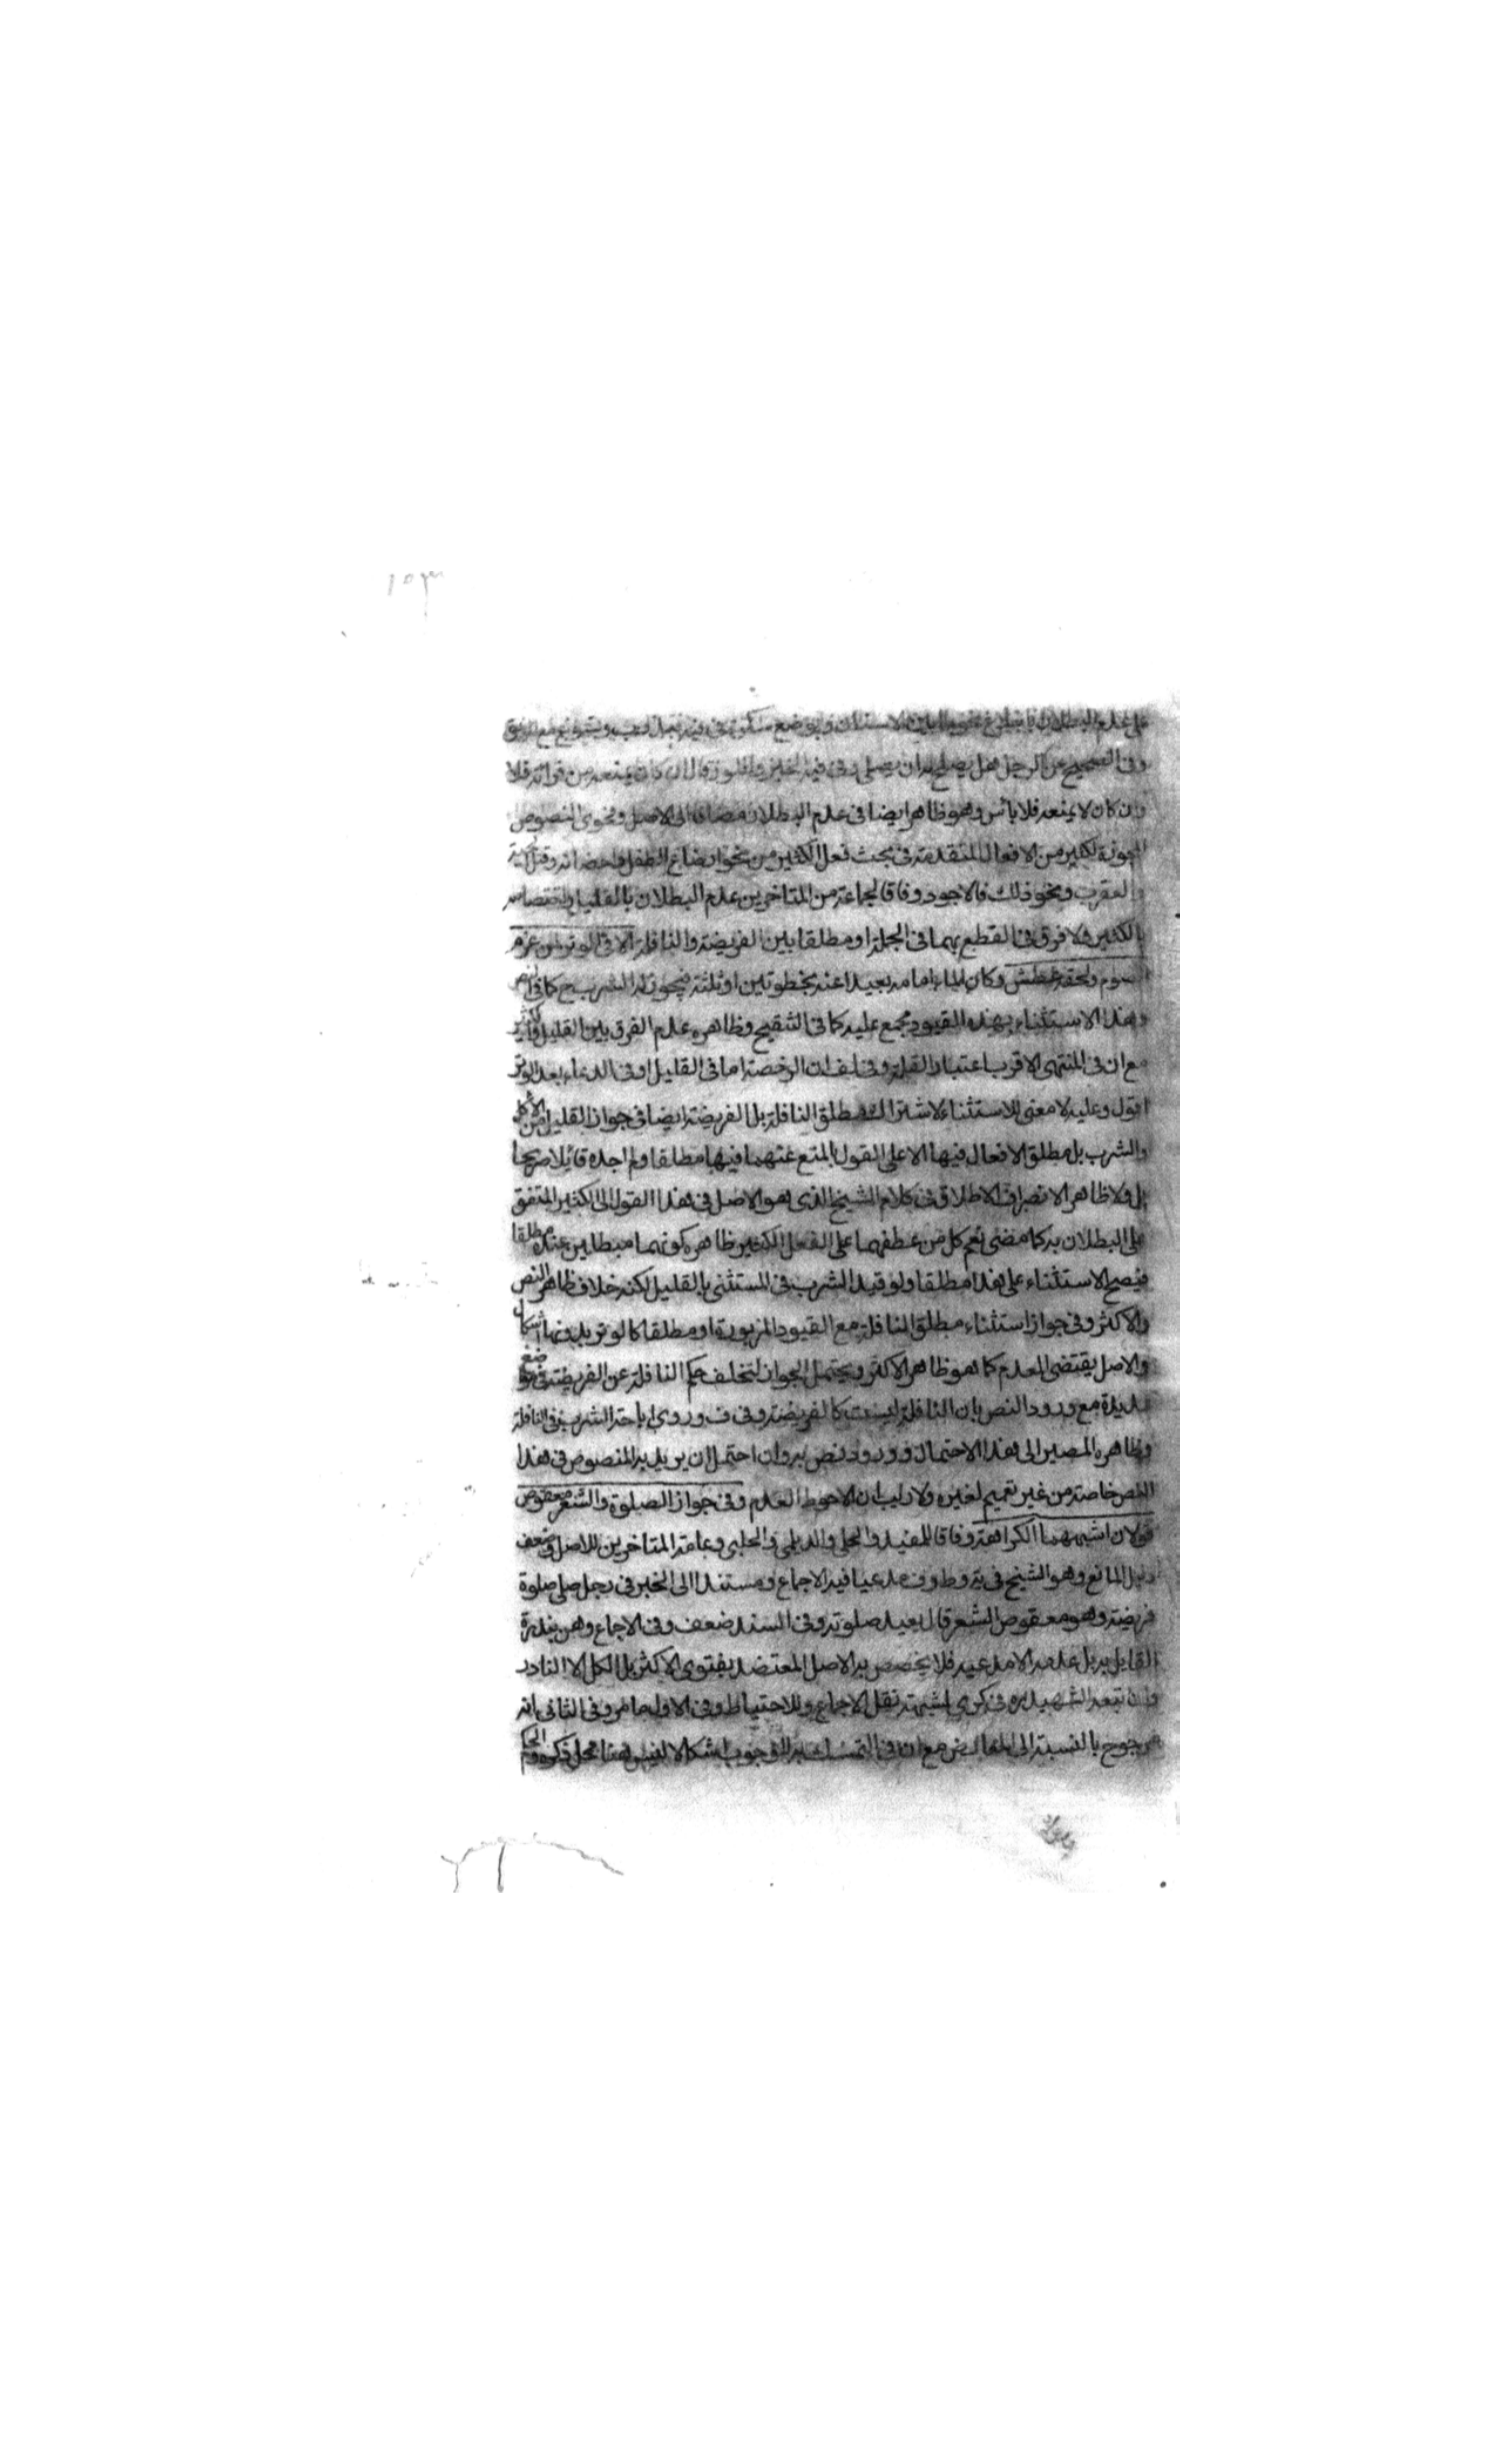 ١٥٣
على عدم البطلان
وفى الصحيح عن الرجل هل يصلح له ان يصلى وفى فيه الخرز واللؤلؤ قال ان كان يمنعه من قرائته فلا
وان كان لا يمنعه فلا باس وهو ظاهر ايضا فى عدم البطلان مضافا الى الاصل وفحوى النصوص
المجوزة لكثير من الافعال المتقدمة فى بحث فعل الكثير من نحو ارضاع الطفل واحضانه وقتل الحية
والعقرب ونحو ذلك فالاجود وفاقا لجماعة من المتاخرين عدم البطلان بالقليل واختصاصه
بالكثير ولا فرق فى القطع بهما فى الجملة او مطلقا بين الفريضة والنافلة الا فى الوتر لمن عزم
الصوم ولحقه عطش وكان الماء امامه بعيدا عنه بخطوتين او ثلثة فيجوز له الشرب ح كما فى النص
وهذا الاستثناء بهذه القيود مجمع عليه كما فى التنقيح وظاهره عدم الفرق بين القليل والكثير
مع ان فى المنتهى الاقرب اعتبار القلة وفى لف ان الرخصة اما فى القليل او فى الدعاء بعد الوتر
اقول وعليه لا معنى للاستثناء لاشتراك مطلق النافلة بل الفريضة ايضا فى جواز القليل من الأكل
والشرب بل مطلق الافعال فيها الا على القول بالمنع عنهما فيها مطلقا ولم اجده قائلا صريحا
بل ولا ظاهرا لانصراف الاطلاق فى كلام الشيخ الذى هو الاصل فى هذا القول الى الكثير المتفق
على البطلان به كما مضى نعم كل من عطفهما على الفعل الكثير ظاهره كونهما مبطلين عنده مطلقا
فيصح الاستثناء على هذا مطلقا ولو قيد الشرب فى المستثنى بالقليل لكنه خلاف ظاهر النص
والاكثر وفى جواز استثناء مطلق النافلة مع القيود المزبورة او مطلقا كالوتر بدونها اشكال
والاصل يقتضى العدم كما هو ظاهر الاكثر ويحتمل الجواز لتخلف حكم النافلة عن الفريضة فى مواضع
عديدة مع ورود النص بان النافلة ليست كالفريضة وفى ف وروى اباحة الشرب فى النافلة
وظاهره المصير الى هذا الاحتمال وورود نص به وان احتمل ان يريد به المنصوص فى هذا
النص خاصة من غير تعميم لغيره ولا ريب ان الاحوط العدم وفى جواز الصلوة والشعر معقوص
قولان اشبههما الكراهة وفاقا للمفيد والحلى والديلمى والحلبى وعامة المتاخرين للاصل وضعف
دليل المانع وهو الشيخ فى يه وط وف مدعيا فيه الاجماع ومستندا الى الخبر فى رجل صلى صلوة
فريضة وهو معقوص الشعر قال يعيد صلوته وفى السند ضعف وفى الاجماع وهن بندرة
القايل به بل عدمه الا مدعيه فلا يخصص به الاصل المعتضد بفتوى الاكثر بل الكل الا النادر
وان تبعه الشهيد ره فى كرى لشبهة نقل الاجماع وللاحتياط وفى الاول ما مر وفى الثانى انه
مرجوح بالنسبة الى المعارض مع ان فى التمسك به للوجوب اشكالا ليس هنا محل ذكره